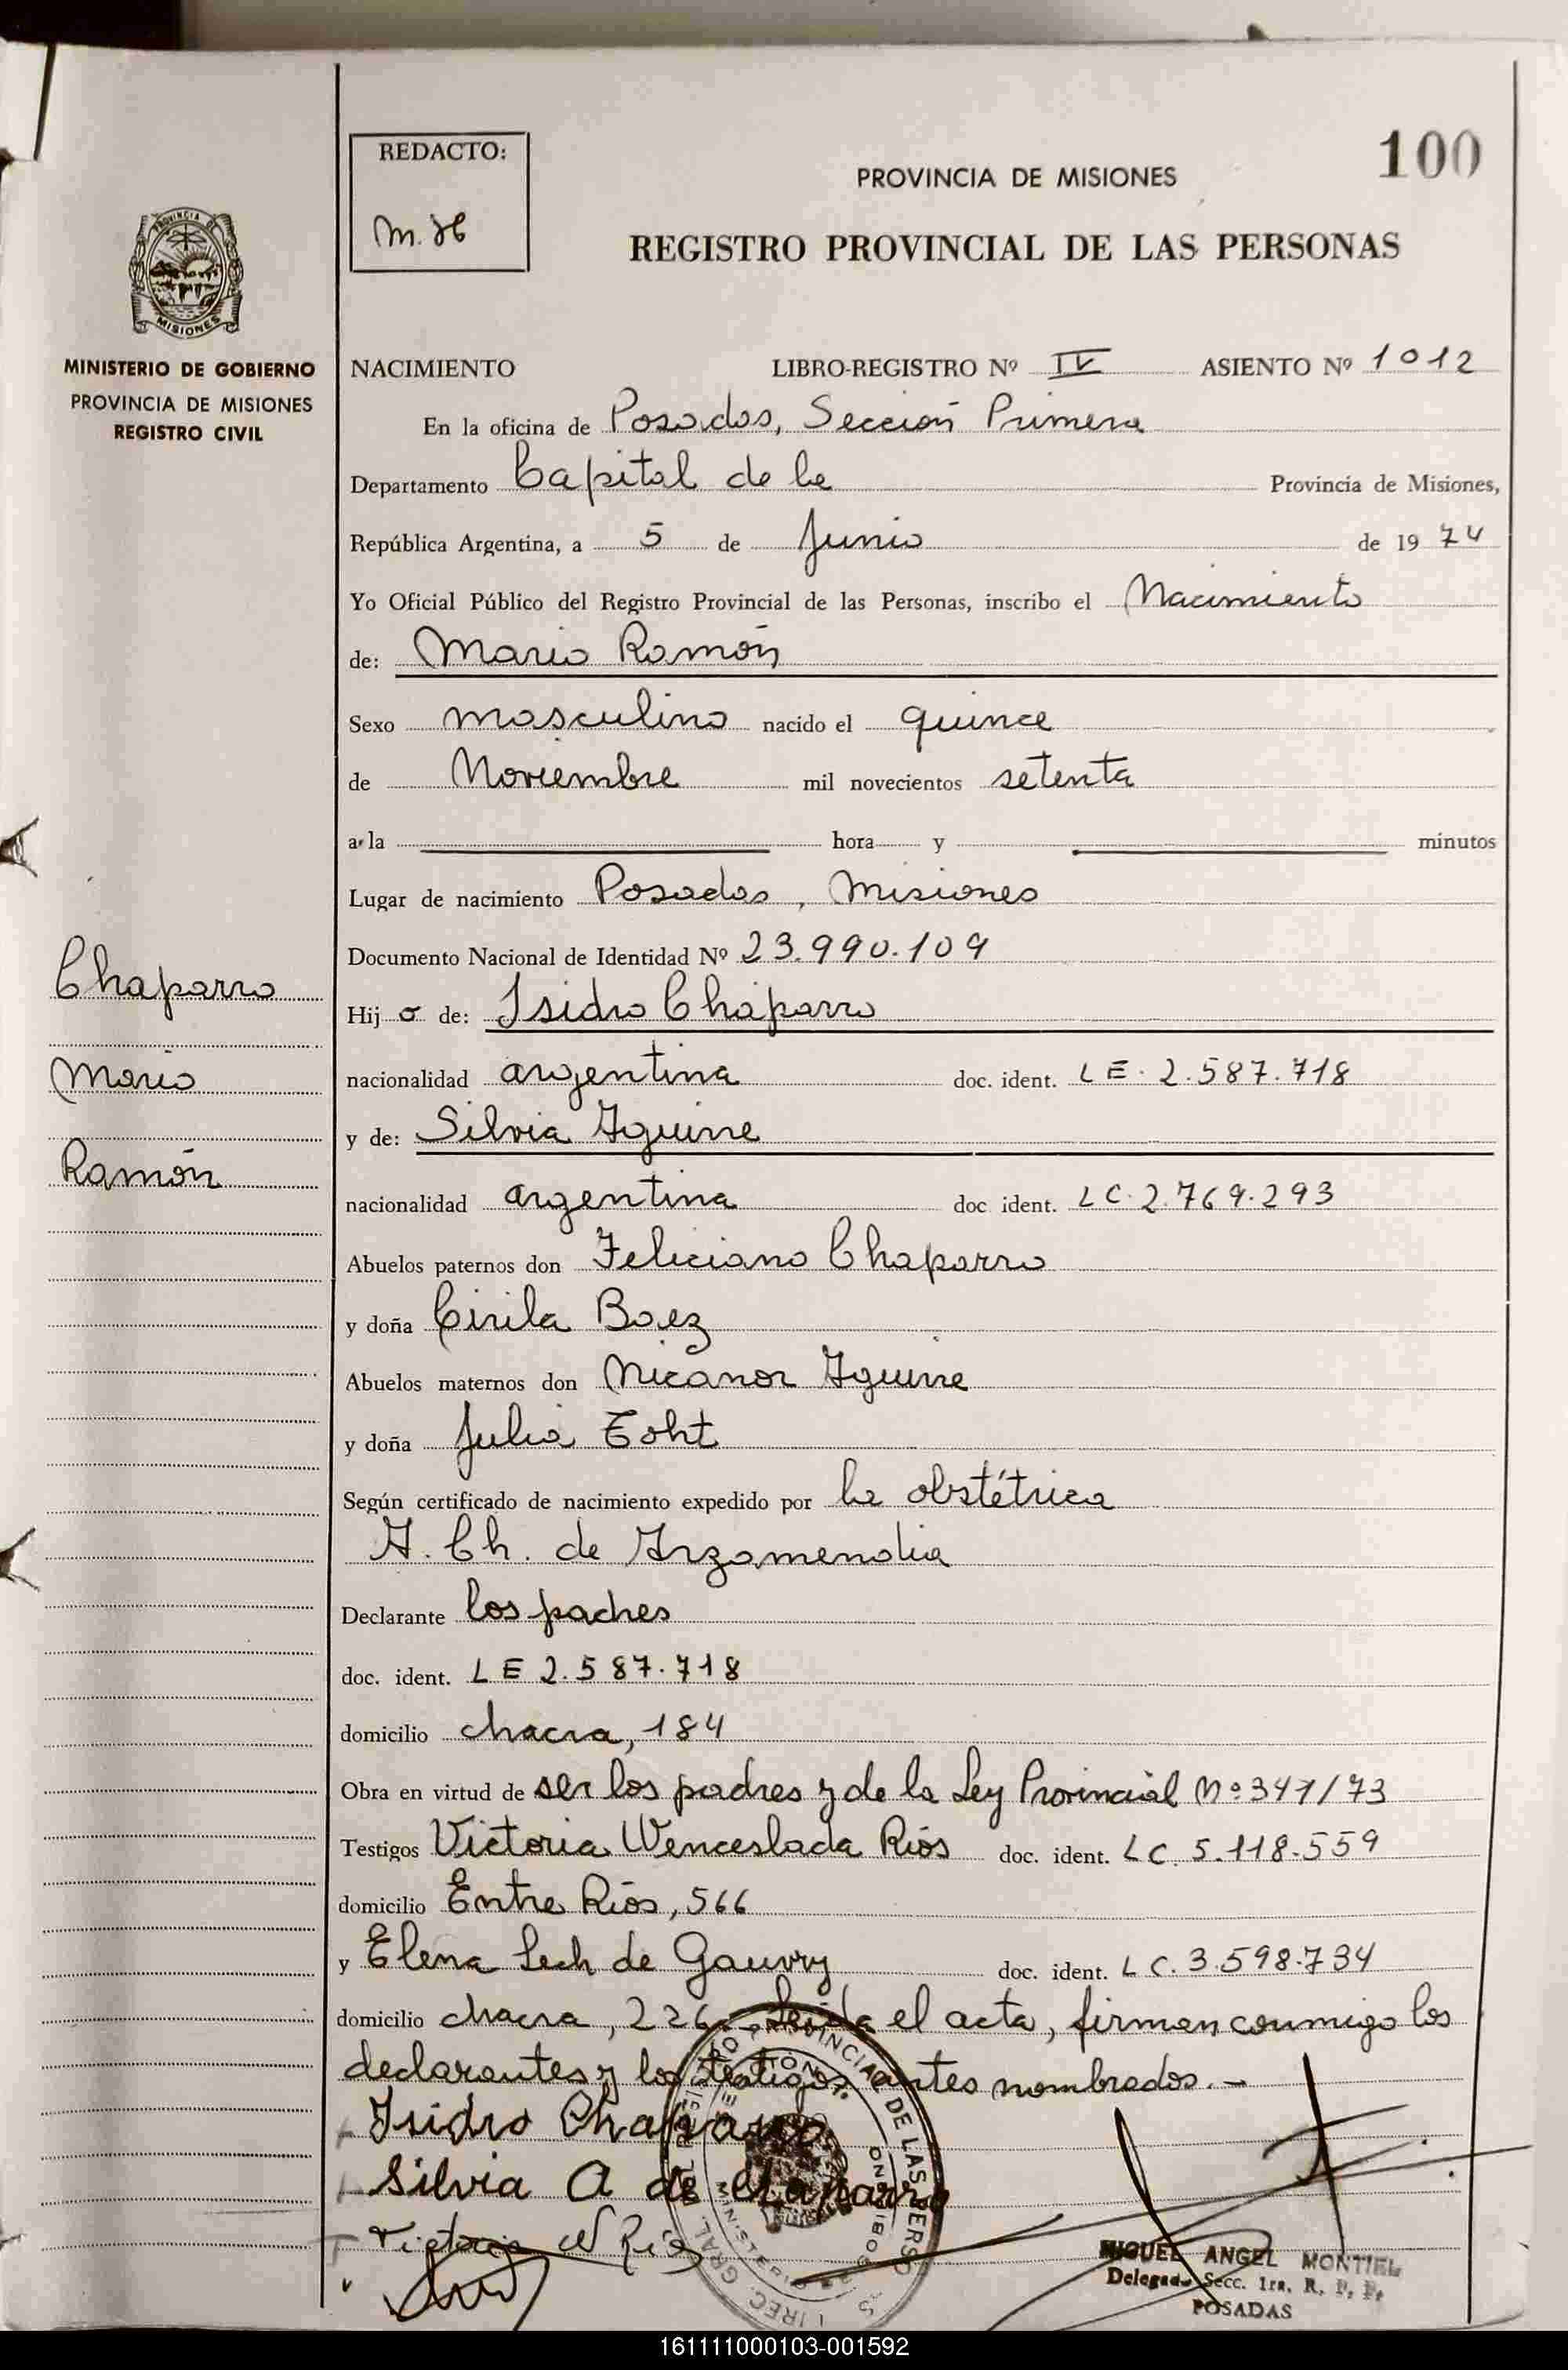 100
REDACTO:
PROVINCIA DE MISIONES
REGISTRO PROVINCIAL DE LAS PERSONAS
PROVINCIA DE
MISIONES
MINISTERIO DE GOBIERNO
PROVINCIA DE MISIONES
REGISTRO CIVIL
NACIMIENTO LIBRO-REGISTRO Nº IV ASIENTO Nº 1012
En la oficina de Posadas, Sección Primera
Departamento Capital de la Provincia de Misiones,
República Argentina, a 5 de Junio de 1974
Yo Oficial Público del Registro Provincial de las Personas, inscribo el Nacimiento
de: Mario Ramón
Sexo masculino nacido el quince
de Noviembre mil novecientos setenta
a la hora y minutos
Lugar de nacimiento Posadas, Misiones
Documento Nacional de Identidad Nº 23.990.109
Chaparro
Mario
Ramón
Hijo de: Isidro Chaparro
nacionalidad argentina doc. ident. LE. 2.587.718
y de: Silvia Aguirre
nacionalidad argentina doc ident. LC. 2.769.293
Abuelos paternos don Feliciano Chaparro
y doña Cirila Baez
Abuelos maternos don Nicanor Aguirre
y doña Julia
Según certificado de nacimiento expedido por la obstétrica
A. Ch. de Arzamendia
Declarante los padres
doc. ident. LE 2.587.718
domicilio chacra, 184
Obra en virtud de ser los padres y de la Ley Provincial Nº 347/73
Testigos Victoria Wenceslada Ríos doc. ident. LC. 5.118.559
domicilio Entre Ríos, 566
y Elena Lech de Gauvry doc. ident. LC. 3.598.734
domicilio chacra, 226.- Leída el acta, firman conmigo los
declarantes y los testigos antes nombrados.-
Isidro Chaparro
Silvia A de Chaparro
Victoria W Ríos
MIGUEL ANGEL MONTIEL
Delegado Secc. 1ra. R. P. P.
POSADAS
161111000103-001592